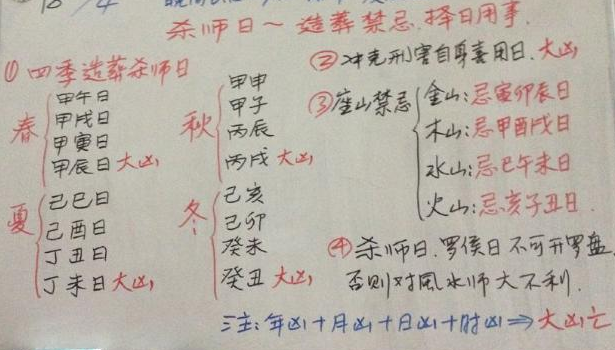 杀师日~造葬禁忌.择日用事.
① 四季造葬杀师日
春
甲午日
甲戌日
甲寅日
甲辰日 大凶
夏
己巳日
己酉日
丁丑日
丁未日 大凶
秋
甲申
甲子
丙辰
丙戌 大凶
冬:
己亥
己卯
癸未
癸丑 大凶
② 冲克刑害自身喜用日.大凶
③ 座山禁忌
金山:忌寅卯辰日
木山:忌申酉戌日
水山:忌巳午未日
火山:忌亥子丑日.
④ 杀师日.罗侯日不可开罗盘
否则对風水师大不利.
注:年凶+月凶+日凶+时凶⇒大凶亡